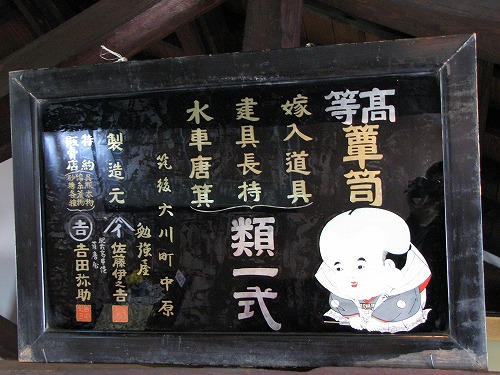 高等
簞笥
嫁入道具
建具長持
水車唐箕
類一式
筑後大川町中原
勉強屋
製造元
佐藤伊之吉
特約
販賣店
吉
吉田弥助